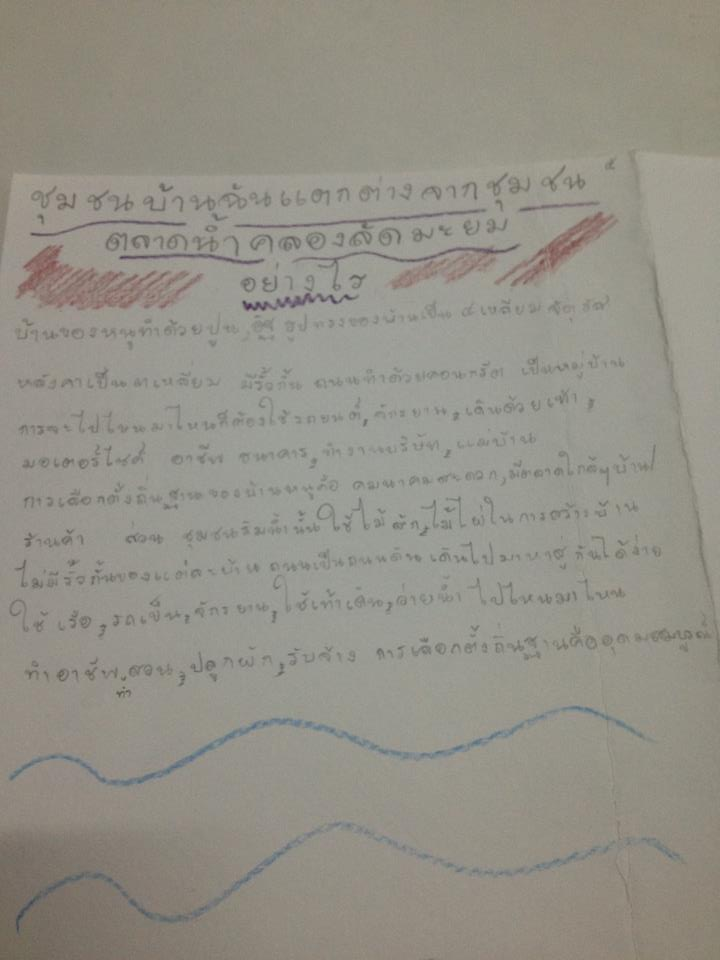 ๕
ชุมชนบ้านฉันแตกต่างจากชุมชน
ตลาดน้ำคลองลัดมะยม
อย่างไร
บ้านของหนูทำด้วยปูน, อิฐ รูปทรงของบ้านเป็น ๔ เหลี่ยม จัตุรัส
หลังคาเป็น ๓ เหลี่ยม มีรั้วกั้น ถนนทำด้วยคอนกรีต เป็นหมู่บ้าน
การจะไปไหนมาไหนก็ต้องใช้รถยนต์, จักรยาน, เดินด้วยเท้า,
มอเตอร์ไซค์ อาชีพ ธนาคาร, ทำงานบริษัท, แม่บ้าน
การเลือกตั้งถิ่นฐานของบ้านหนูคือ คมนาคมสะดวก, มีตลาดใกล้ๆบ้าน/
ร้านค้า ส่วน ชุมชนริมน้ำนั้นใช้ไม้สัก, ไม้ไผ่ในการสร้างบ้าน
ไม่มีรั้วกั้นของแต่ละบ้าน ถนนเป็นถนนดิน เดินไปมาหาสู่กันได้ง่าย
ใช้ เรือ, รถเข็น, จักรยาน, ใช้เท้าเดิน, ว่ายน้ำ ไปไหนมาไหน
ทำอาชีพ, ทำสวน, ปลูกผัก, รับจ้าง การเลือกตั้งถิ่นฐานคืออุดมสมบูรณ์